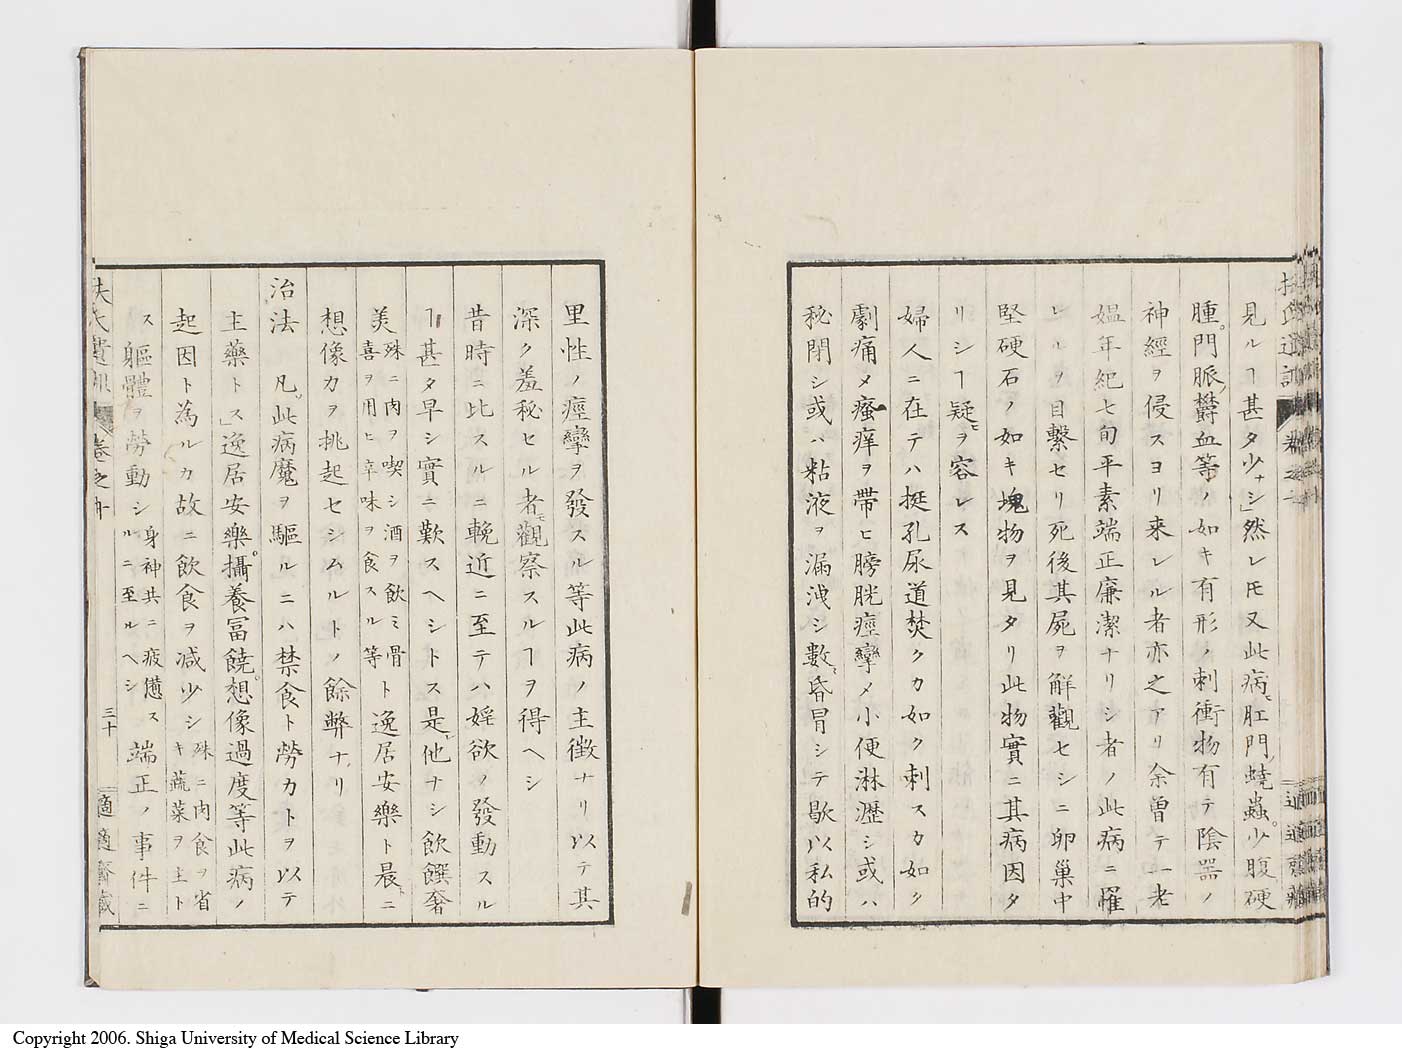 見ルヿ甚タ少ナシ」然レ𪜈又此病ハ肛門、蟯蟲。少腹硬
腫。門脈、欝血等ノ如キ有形ノ刺衝物有テ陰器ノ
神經ヲ侵スヨリ來レル者亦之アリ余曽テ一老
媼年紀七旬平素端正廉潔ナリシ者ノ此病ニ罹
レルヲ目擊セリ死後其屍ヲ解觀セシニ卵巢中
堅硬石ノ如キ塊物ヲ見タリ此物實ニ其病因タ
リシヿ疑ヲ容レス
婦人ニ在テハ挺孔尿道焚クカ如ク刺スカ如ク
劇痛メ瘙痒ヲ帶ヒ膀胱痙攣メ小便淋瀝シ或ハ
秘閉シ或ハ粘液ヲ漏洩シ數昏冒シテ歇以私的
里性ノ痙攣ヲ發スル等此病ノ主徴ナリ以テ其
深ク羞秘セル者モ觀察スルヿヲ得ヘシ
昔時ニ比スルニ輓近ニ至テハ婬欲ノ發動スル
ヿ甚タ早シ實ニ歎スヘシトス是他ナシ飲饌奢
美殊ニ肉ヲ喫シ酒ヲ飲ミ骨喜ヲ用ヒ辛味ヲ食スル等ト逸居安樂ト晨ニ
想像力ヲ挑起セシムルトノ餘弊ナリ
治法 凡此病魔ヲ驅ルニハ禁食ト勞力トヲ以テ
主藥トス」逸居安樂。攝養冨饒。想像過度等此病ノ
起因ト為ルカ故ニ飲食ヲ减少シ殊ニ肉食ヲ省キ蔬菜ヲ主トス
軀體ヲ勞動シ身神共ニ疲憊スルニ至ルヘシ端正ノ事件ニ
扶氏遺訓 卷之十 三十 適適齋藏